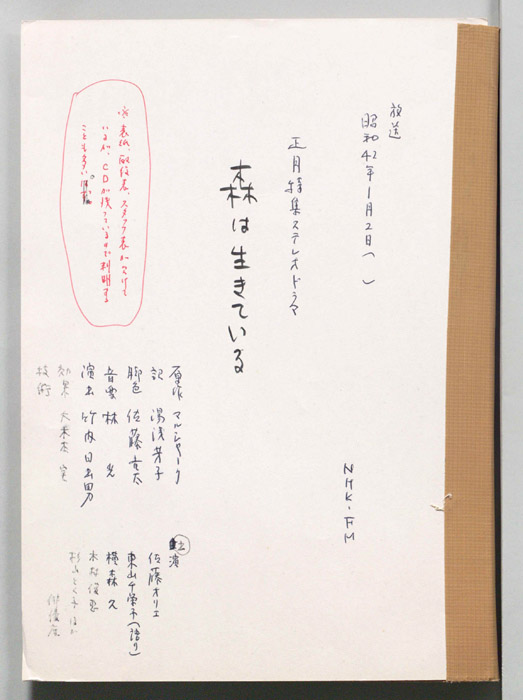 放送
昭和42年1月2日( )
正月特集ステレオドラマ
NHK・FM
森は生きている
原作 マルシャーク
訳 湯浅芳子
脚色 佐藤
音楽 林 光
演出 竹内日出男
効果 大 宏
技術
主演
佐藤オリエ
東山千栄子(語り)
横森久
木村俊恵
杉山とく子 ほか
俳優座
※表紙、配役表、スタッフ表が欠けて
いるが、CDが残っているので判明する
ことも多い